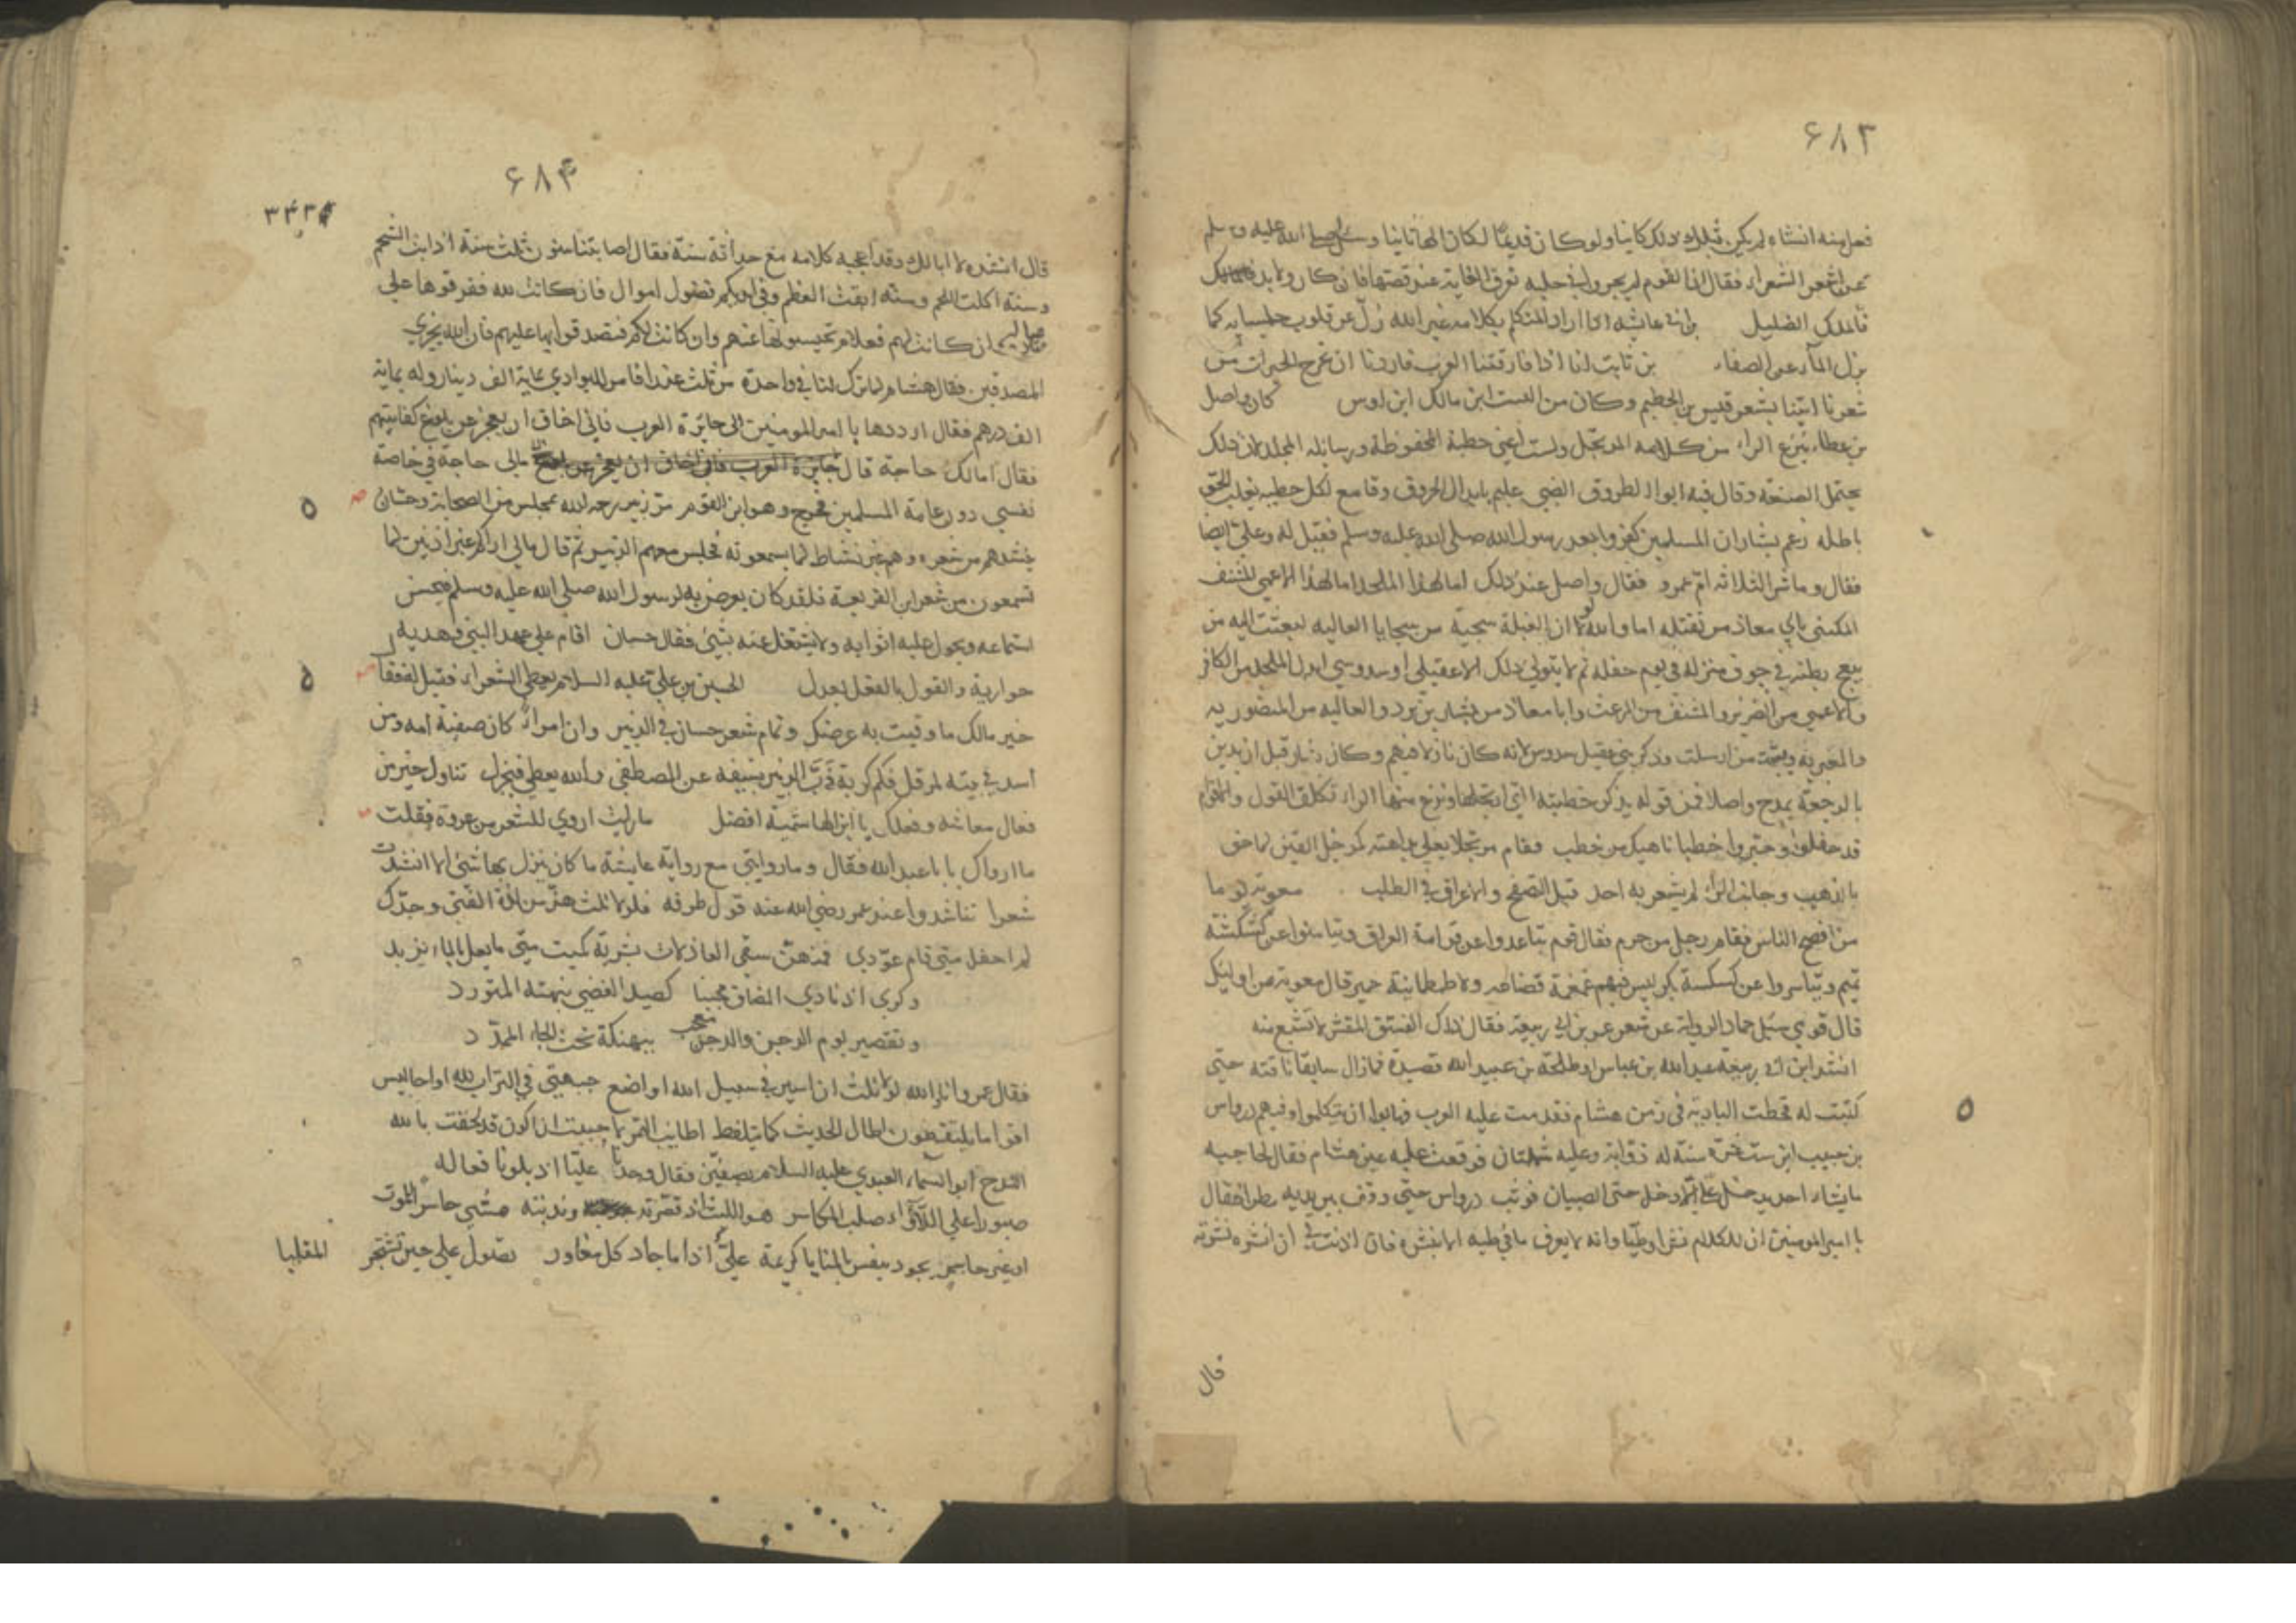 ۶۸۳
فعل منه انشاه لم يكن قبل ذلك كاينا ولو كان قديمًا لكان الها ثانيا وسئل صلى الله عليه وسلم
عن اشعر الشعراء فقال ان القوم لم يجروا في حلبه تعرف الغاية عند قصبتها فان كان ولا بد
فالملك الضليل عايشه اذا اراد المتكلم بكلامه غير الله زل عن قلوب جلسايه كما
يزل المآء عن الصفاء بن ثابت لنا اذا فارقتنا العرب فاردنا ان تخرج الحبرات من
شعرنا اتينا بشعر قيس بن الخطيم وكان من النبيت ابن مالك ابن اوس كان واصل
بن عطاء ينزع الراء من كلامه المرتجل ولست اعني خطبة المحفوظة ورسايله المجلد لان ذلك
يحتمل الصنعة وقال فيه ابو الطروق الضبي عليم بابدال الحروف وقامع لكل خطيب يغلب الحق
باطله زعم بشار ان المسلمين كفروا بعد رسول الله صلى الله عليه وسلم فقيل له وعلي ايضا
فقال وما شر الثلاثه ام عمرو فقال واصل عند ذلك اما لهذا الملحد اما لهذا الاعمي المشنف
المكني بابي معاذ من يقتله اما والله لولا ان الغيلة سجية من سجايا الغاليه لبعثت اليه من
يبعج بطنه في جوف منزله في يوم حفله ثم لا يتولي ذلك الا عقيلي او سدوسي ابدل الملحد من الكافر
والاعمي من الضرير والمشنف من المرعث وابا معاذ من بشار بن برد والغاليه من المنصوريه
والمغيريه وبعثت من ارسلت وذكر بني عقيل سدوس لانه كان نازلا فيهم وكان بشار قبل ان يدين
بالرجعة يمدح واصلا فمن قوله يذكر خطبته التي ارتجلها ونزع منها الراء تكلف القول والاقوام
قد حفلوا وحبروا خطبا ناهيك من خطب فقام مرتجلا يغلي بداهته كمرجل القين لما حف
باللهب وجانب الراء لم يشعر به احد قبل التصفح والاغراق في الطلب معوية يوما
من افصح الناس فقام رجل من جرم فقال قوم تباعدوا عن فراتية العراق وتيامنوا عن كشكشة
تميم وتياسروا عن كسكسة بكر ليس فيهم غمغمة قضاعه ولا طمطانية حمير قال معوية من اوليك
قال قومي سئل حماد الراوية عن شعر عمر بن ابي ربيعة فقال ذلك الفستق المقشر لا تشبع منه
انشد ابن ابي ربيعة عبد الله بن عباس او طلحة بن عبيد الله قصيدة فما زال سايقا ناقته حتي
كتبت له قحطت البادية في زمن هشام فقدمت عليه العرب فهابوا ان يتكلموا وفيهم درواس
بن حبيب ابن ست عشرة سنة له ذؤابة وعليه شملتان فوقعت عليه عين هشام فقال لحاجبه
ما يشاء احد يدخل علي الا دخل حتي الصبيان فوثب درواس حتي وقف بين يديه مطرقا فقال
يا امير المومنين ان للكلام نشرا وطيا وانه لا يعرف ما في طيه الا بنشره فان اذنت لي ان انشره نشرته
قال
۶۸۴
قال انشده لا ابا لك وقد اعجبه كلامه مع حداثة سنه فقال اصابتنا سنون ثلث سنة اذابت الشحم
وسنة اكلت اللحم وسنة انقت العظم وفي ايديكم فضول اموال فان كانت لله ففرقوها علي
عباده ان كانت لهم فعلام تحبسونها عنهم وان كانت لكم فتصدقوا بها عليهم فان الله يجزي
المصدقين فقال هشام ما ترك لنا في واحدة من ثلث عذرا فامر للبوادي بماية الف دينار وله بماية
الف درهم فقال ارددها يا امير المومنين الى جايزة العرب فاني اخاف ان يعجز عن بلوغ كفايتهم
فقال اما لك حاجة قال مالي حاجة في خاصة
نفسي دون عامة المسلمين فخرج وهو ابن القوم مر زبير رحمه الله بمجلس من الصحابة وحسان
ينشدهم من شعره وهم غير نشاط لما يسمعونه فجلس معهم الزبير ثم قال مالي اراكم غير اذنين لما
تسمعون من شعر ابن الفريعة فلقد كان يعرض به لرسول الله صلى الله عليه وسلم فيحسن
استماعه ويجزل عليه ثوابه ولا يشتغل عنه بشيء فقال حسان اقام علي عهد النبي وهديه
حواريه والقول بالفعل يعدل الحسين بن علي عليه السلام يعطي الشعراء فقيل له فقال
خير مالك ما وقيت به عرضك وتمام شعر حسان في الزبير وان امراء كان صفية امه ومن
اسد في بيته لمرفل فكم كربة ذب الزبير بسيفه عن المصطفي والله يعطي فيجزل ثناوك خير من
فعال معاشر وفعلك يا ابن الهاشمية افضل ما رايت اروي للشعر من عروة فقلت
ما ارواك يا با عبد الله فقال وما روايتي مع رواية عايشة ما كان ينزل بها شئ الا انشدت
شعرا تناشدوا عند عمر رضي الله عنه قول طرفه فلولا ثلث هن من لذة الفتى وجدك
لم احفل متى قام عودي فمنهن سبقى العاذلات بشربة كميت متى ما يعل بالماء يزبد
وكري اذ نادي المضاف مجنبا كصيد الغضي نبهته المتورد
وتقصير يوم الدجن والدجن معجب ببهنكة تحت الخباء الممدد
فقال عمر وانا والله لولا ثلث ان اسير في سبيل الله او اضع جبهتي في التراب لله او اجالس
اقواما يلتقطون اطال الحديث كما يتلفظ اطايب التمر لاحببت ان اكون قد لحقت بالله
امتدح ابو السماء العبدي عليه السلام بصفين فقال وجدنا عليا اذ بلونا فعاله
صبورا علي اللآواء صلب المكاسر هو الليث اذ وندبته مشي حاسر للموت
او غير حاسر يجود بنفس للمنايا كريمة علي اذا ما جاد كل مغاور تصول علي حين تشتجر
المقليا